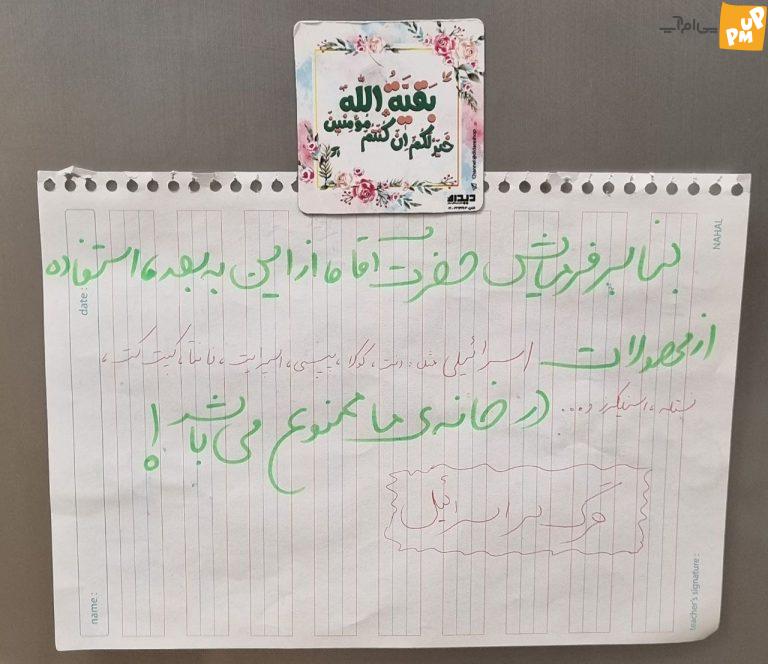 پی‌ام‌آپ
PM UP
بقیة الله
خیر لکم ان کنتم مؤمنین
دیدره
NAHAL
date :
بنا بر فرمایش حضرت آقا، از این به بعد، استفاده
از محصولات اسرائیلی مثل : ، کوکا، پپسی، اسپرایت، فانتا، کیت کت،
نستله، اسنیکرز و... در خانه‌ی ما ممنوع می‌باشد!
مرگ بر اسرائیل
name :
teacher's signature :